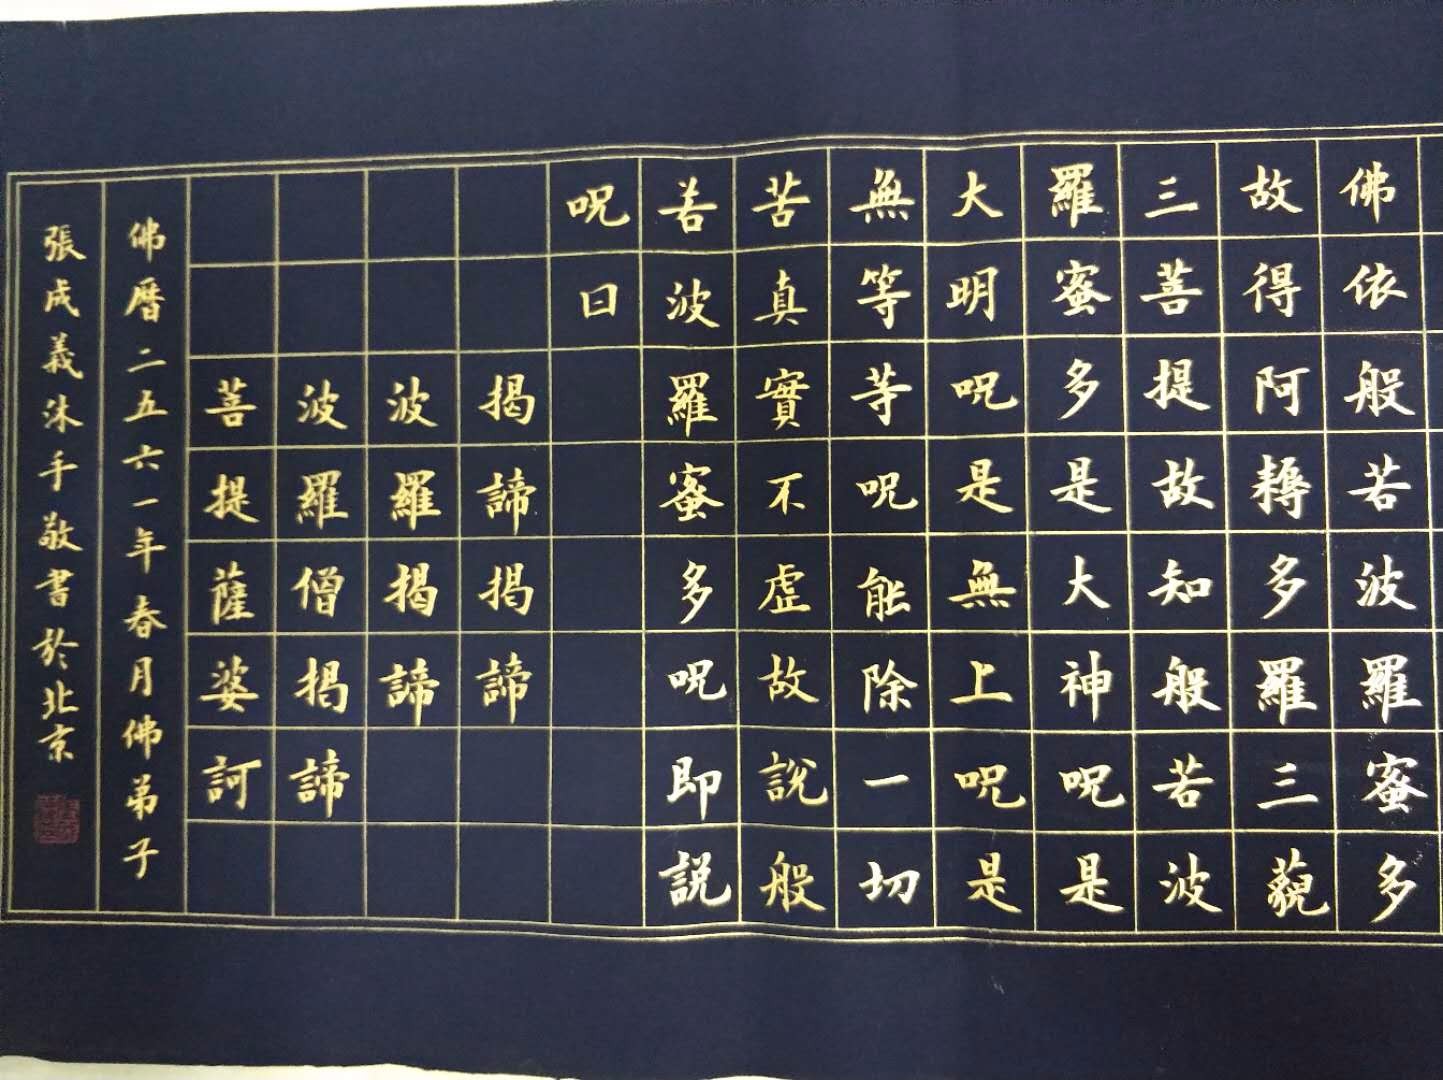 佛依般若波羅蜜多
故得阿耨多羅三藐
三菩提故知般若波
羅蜜多是大神呪是
大明呪是無上呪是
無等等呪能除一切
苦真實不虛故說般
若波羅蜜多呪即説
呪曰
揭諦揭諦
波羅揭諦
波羅僧揭諦
菩提薩婆訶
佛曆二五六一年春月佛弟子
張成義沐手敬書於北京